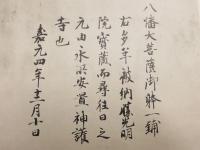 八幡大菩薩御躰一鋪
右多年被納勝光明
院寶蔵而尋往日之
元由永以安置神護
寺也
嘉元四年十二月十日